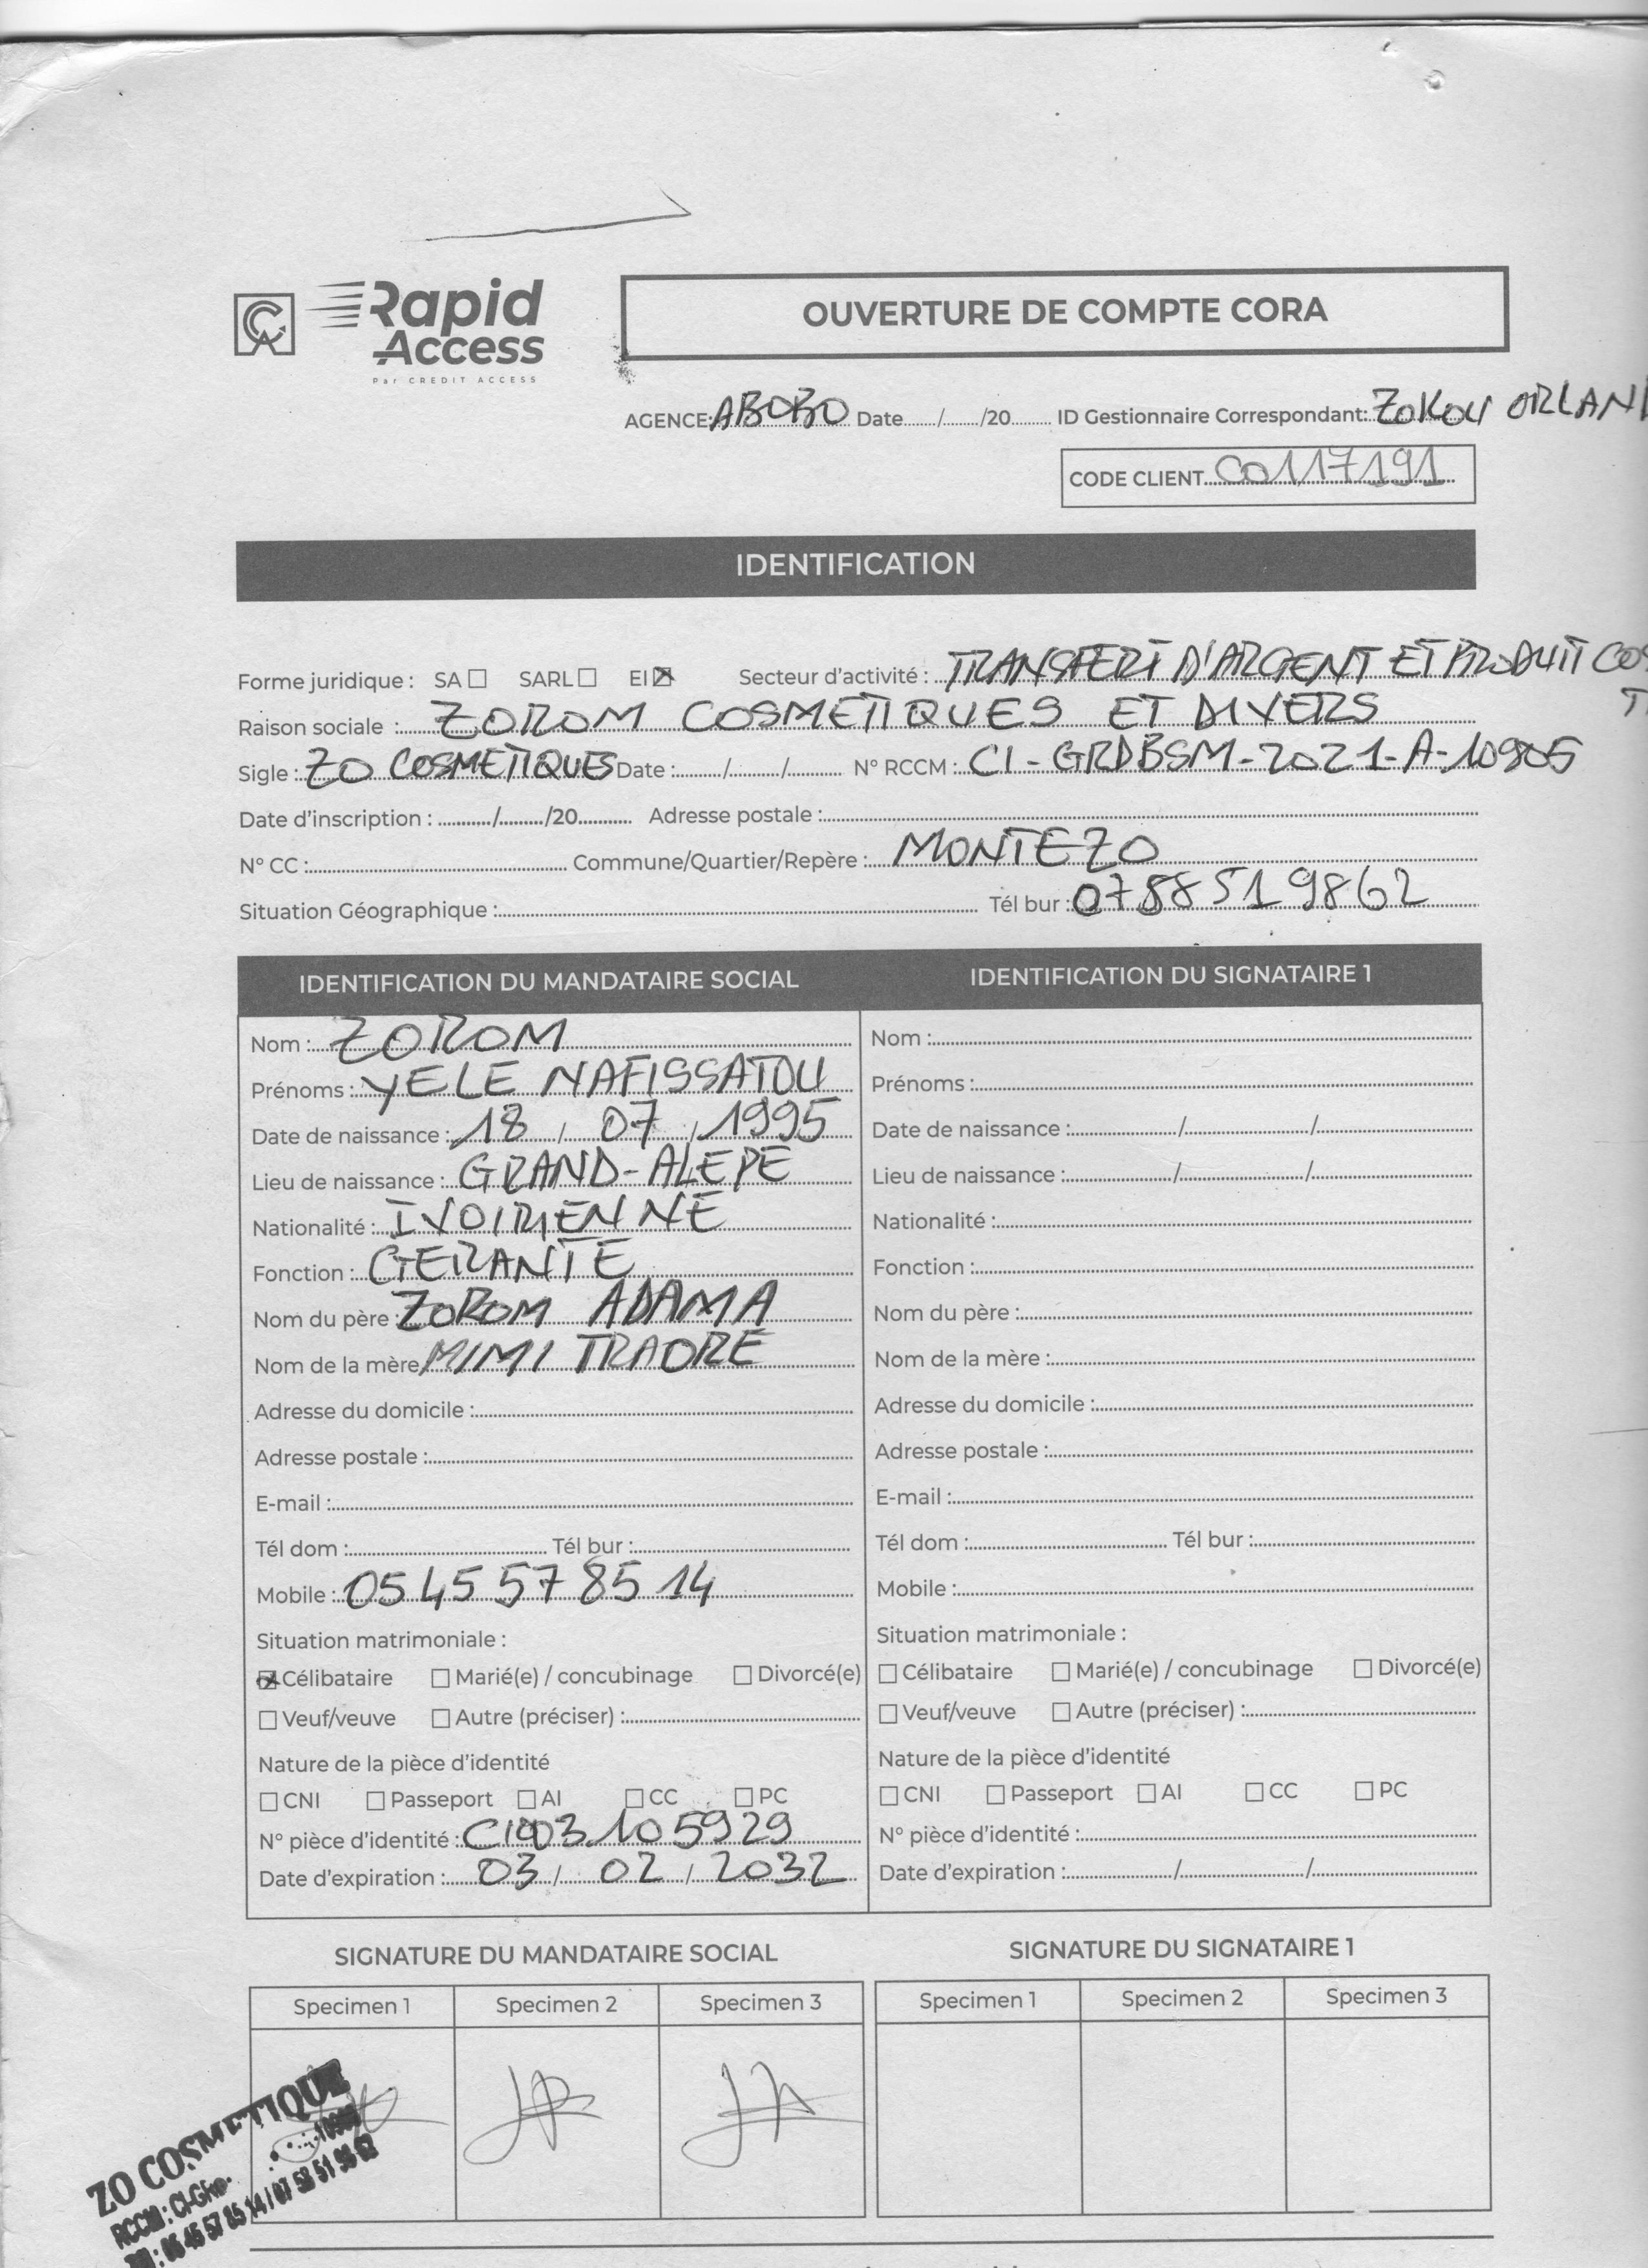 Rapid
Access
Par CREDIT ACCESS
OUVERTURE DE COMPTE CORA
AGENCE: ABOBO Date....../....../20...... ID Gestionnaire Correspondant: ZOKOU ORLAN
CODE CLIENT CO117191
IDENTIFICATION
Forme juridique : SA ☐ SARL ☐ EI ☒ Secteur d'activité : TRANSFERT D'ARGENT ET PRODUIT COS
Raison sociale : ZOROM COSMETIQUES ET DIVERS
Sigle : ZO COSMETIQUES Date :....../....../...... N° RCCM : CI-GRDBSM-2021-A-10905
Date d'inscription : ....../....../20...... Adresse postale :
N° CC : Commune/Quartier/Repère : MONTEZO
Situation Géographique : Tél bur : 0788519862
IDENTIFICATION DU MANDATAIRE SOCIAL
Nom : ZOROM
Prénoms : YELE NAFISSATOU
Date de naissance : 18 / 07 / 1995
Lieu de naissance : GRAND-ALEPE
Nationalité : IVOIRIENNE
Fonction : GERANTE
Nom du père : ZOROM ADAMA
Nom de la mère MIMI TRAORE
Adresse du domicile :
Adresse postale :
E-mail :
Tél dom : Tél bur :
Mobile : 05 45 57 85 14
Situation matrimoniale :
☒ Célibataire ☐ Marié(e) / concubinage ☐ Divorcé(e)
☐ Veuf/veuve ☐ Autre (préciser) :
Nature de la pièce d'identité
☐ CNI ☐ Passeport ☐ AI ☐ CC ☐ PC
N° pièce d'identité :
Date d'expiration : 03 / 02 / 2032
IDENTIFICATION DU SIGNATAIRE 1
Nom :
Prénoms :
Date de naissance :....../....../......
Lieu de naissance :....../....../......
Nationalité :
Fonction :
Nom du père :
Nom de la mère :
Adresse du domicile :
Adresse postale :
E-mail :
Tél dom : Tél bur :
Mobile :
Situation matrimoniale :
☐ Célibataire ☐ Marié(e) / concubinage ☐ Divorcé(e)
☐ Veuf/veuve ☐ Autre (préciser) :
Nature de la pièce d'identité
☐ CNI ☐ Passeport ☐ AI ☐ CC ☐ PC
N° pièce d'identité :
Date d'expiration :....../....../......
SIGNATURE DU MANDATAIRE SOCIAL
Specimen 1 Specimen 2 Specimen 3
ZO COSMETIQUE
RCCM : CI-
SIGNATURE DU SIGNATAIRE 1
Specimen 1 Specimen 2 Specimen 3